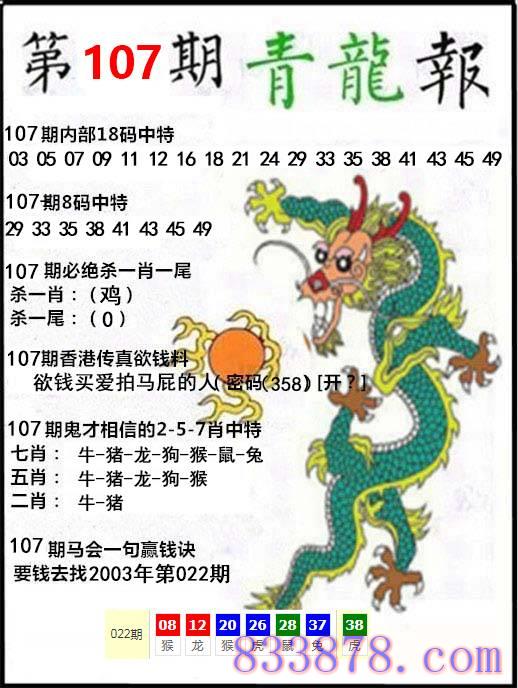 第107期青龍報
107期内部18码中特
03 05 07 09 11 12 16 18 21 24 29 33 35 38 41 43 45 49
107期8码中特
29 33 35 38 41 43 45 49
107期必绝杀一肖一尾
杀一肖：（鸡）
杀一尾：（0）
107期香港传真欲钱料
欲钱买爱拍马屁的人( 密码(358) [开？]
107期鬼才相信的2-5-7肖中特
七肖： 牛-猪-龙-狗-猴-鼠-兔
五肖： 牛-猪-龙-狗-猴
二肖： 牛-猪
107期马会一句赢钱诀
要钱去找2003年第022期
022期 08 12 20 26 28 37 38
猴 龙 猴 虎 鼠 兔 虎
833878.com